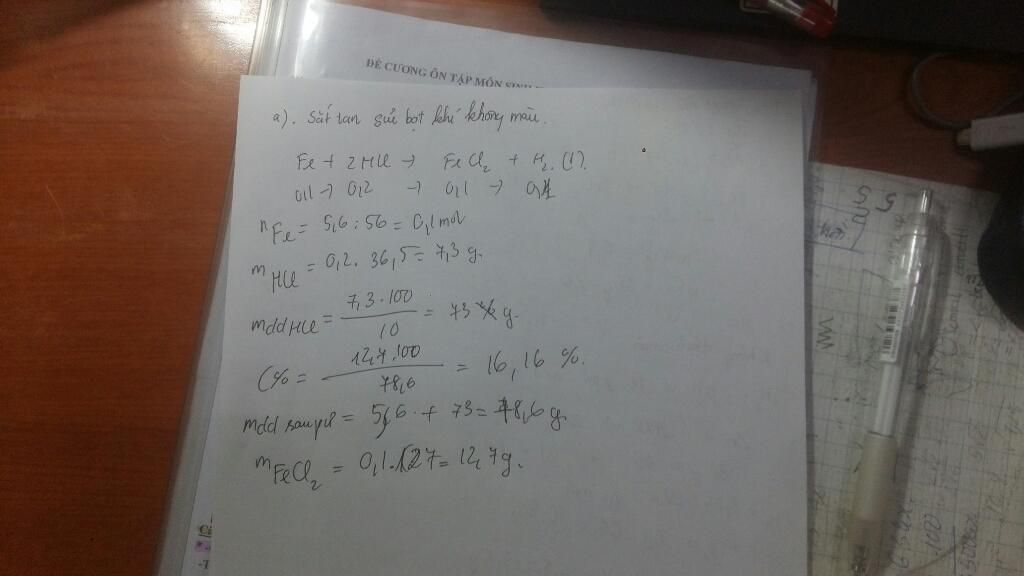 ĐỀ CƯƠNG ÔN TẬP MÔN SINH
a). Sắt tan sủi bọt khí không màu.
Fe + 2HCl → FeCl2 + H2. (1).
0,1 → 0,2 → 0,1 → 0,1
nFe = 5,6 : 56 = 0,1 mol
mHCl = 0,2 . 36,5 = 7,3 g.
mddHCl = 7,3 . 100 / 10 = 73 g.
C% = 12,7 . 100 / 78,6 = 16,16 %.
mdd sau pư = 5,6 + 73 = 78,6 g.
mFeCl2 = 0,1 . 127 = 12,7 g.